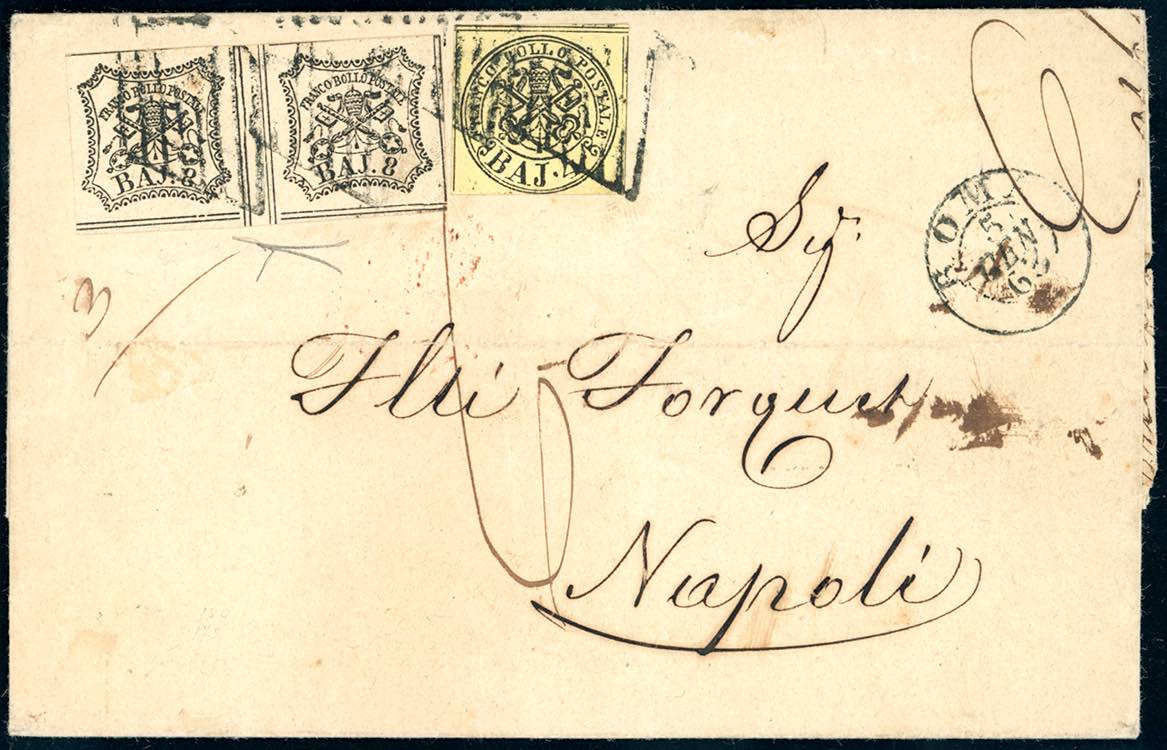 FRANCO BOLLO POSTALE
BAJ. 8
FRANCO BOLLO POSTALE
BAJ. 8
FRANCO BOLLO POSTALE
BAJ. 4
ROMA
5
GEN
Sig.
Flli Forquet
Napoli
3